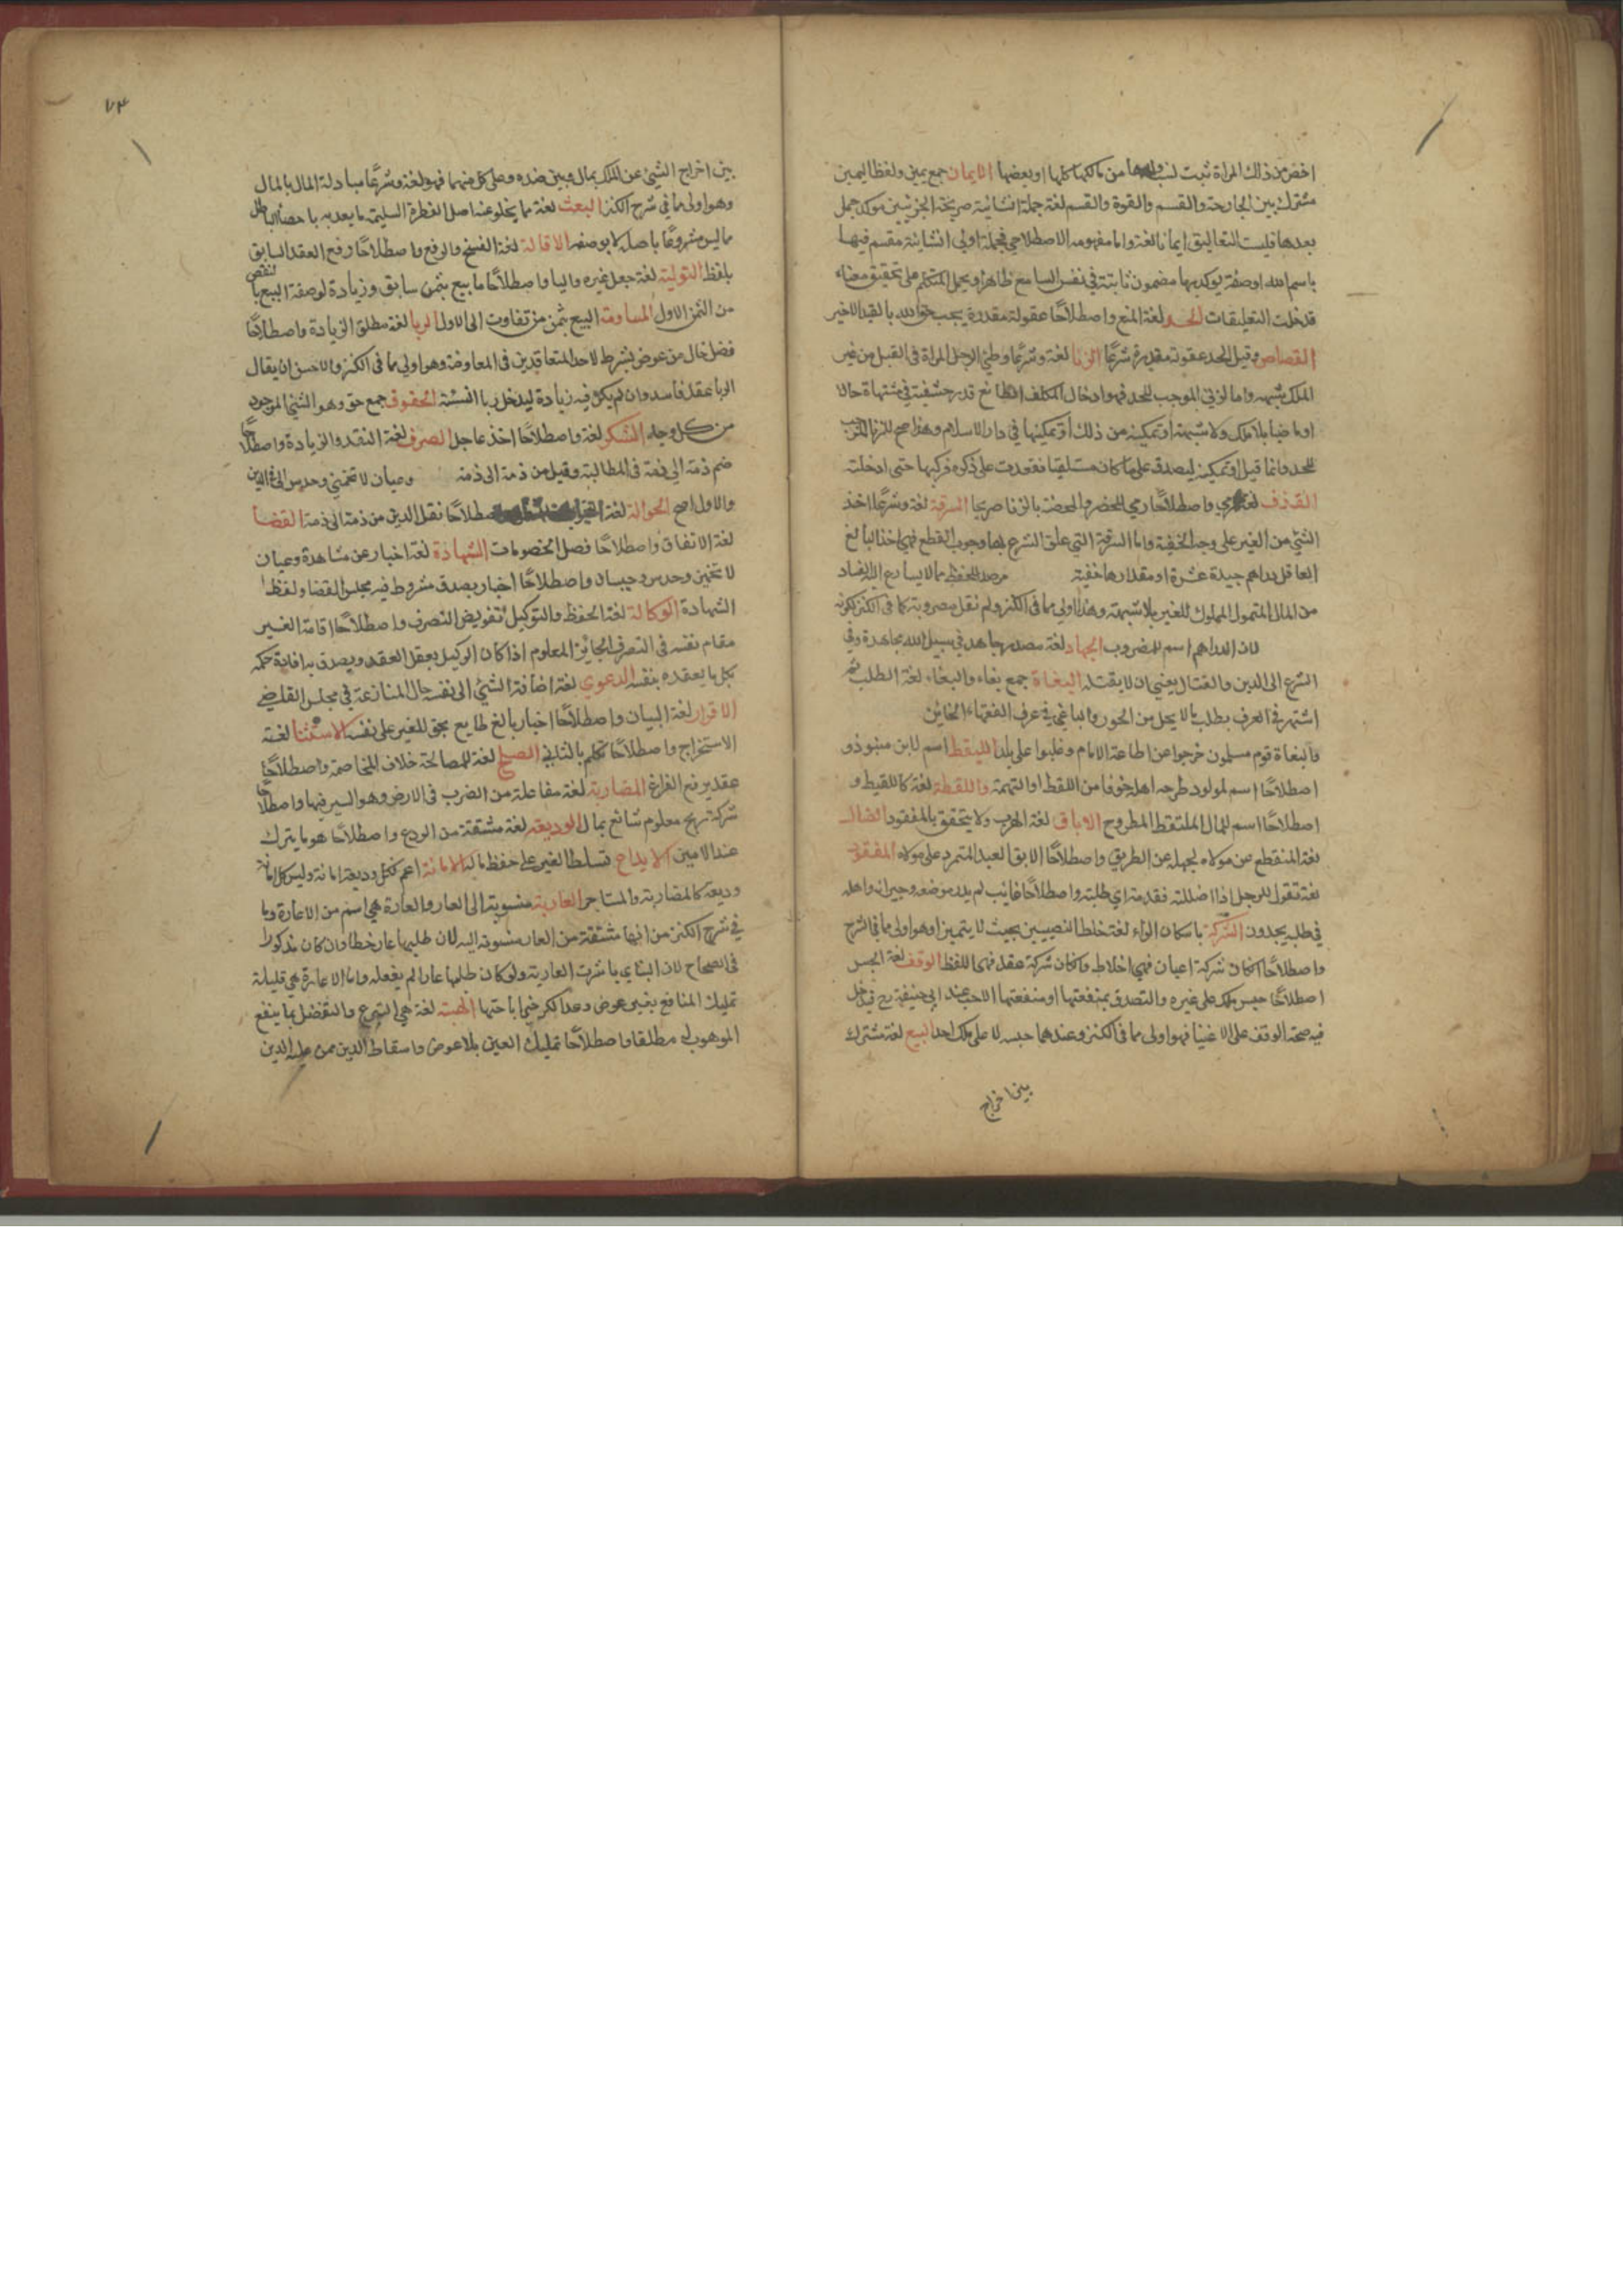 اخص من ذلك المراة ثبت لنسب ولدها من مالكها كلها او بعضها الايمان جمع يمين ولفظ اليمين
مشترك بين الجارحة والقسم والقوة والقسم لغة جملة انشائية صريحة الجزئين موكد جمل
بعدها فليست التعاليق ايمانا لغة واما مفهومه الاصطلاحي فجملة اولى انشائية مقسم فيها
باسم الله او صفة يوكد بها مضمون ثابتة في نفس السامع ظاهرا ويحمل المتكلم على تحقيق معناه
فدخلت التعليقات الحد لغة المنع واصطلاحا عقوبة مقدرة يجب حق الله بالقيد الاخير
القصاص وقيل الحد عقوبة مقدرة شرعا الزنا لغة وشرعا وطئ الرجل المراة في القبل من غير
الملك وشبهه واما لزنى الموجب للحد فهو ادخال المكلف الطائع قدر حشفته في مشتهاة حالا
او ماضيا بلا ملك ولا شبهة او تمكينه من ذلك او تمكينها في دار الاسلام وهذا اصح للزنا الموجب
للحد وانما قيل او تمكينه ليصدق على ما كان مستلقيا فقعدت على ذكره فركبها حتى ادخلته
القذف لغة رمي واصطلاحا رمي المحصن والمحصنة بالزنا صريحا السرقة لغة وشرعا اخذ
الشئ من الغير على وجه الخفية واما السرقة التي علق الشرع بها وجوب القطع فهي اخذ البالغ
العاقل دراهم جيدة عشرة او مقدارها خفية مرصد للحفظ مما لا يسارع اليه الفساد
من المال المتمول المملوك للغير بلا شبهة وهذا اولى مما في الكنز ولم نقل مضروبة كما في الكنز لكونه
لان الدراهم اسم للمضروب الجهاد لغة مصدر جاهد في سبيل الله مجاهدة وفي
الشرع الى الدين والقتال يعني ان لا يقتله البغاة جمع بغاء والبغاء لغة الطلب ثم
اشتهر في العرف بطلب مالا يحل من الجور والباغي في عرف الفقهاء الخائن
والبغاة قوم مسلمون خرجوا عن اطاعة الامام وغلبوا على بلد اللقيط اسم لابن منبوذ و
اصطلاحا اسم لمولود طرحه اهله خوفا من اللقط او التهمة واللقطة لغة كاللقيط و
اصطلاحا اسم للمال الملتقط المطروح الاباق لغة الهرب ولا يتحقق بالمفقود الضال
لغة المنقطع عن مولاه لجهله عن الطريق واصطلاحا الابق العبد المتمرد على مولاه المفقود
لغة تقول للرجل اذا اضللته فقدمته اي طلبته واصطلاحا غايب لم يدر موضعه وجيرانه واهله
في طلبه يجدون الشركة باسكان الراء لغة خلط النصيبين بحيث لا يتميز او هو اولى مما في الشرح
واصطلاحا ان كان شركة اعيان فهي اخلاط وان كان شركة عقد فهي اللفظ الوقف لغة الحبس
اصطلاحا حبس ملك على غيره والتصدق بمنفعتها او منفعتها الاحب عند ابي حنيفة رح فيدخل
فيه صحة الوقف على الاغنيا فهو اولى مما في الكنز وعندهما حبسه لا على ملك احد البيع لغة مشترك
بين اخراج
٧٣
بين اخراج الشئ عن الملك بمال وبين ضده وعلى كل منهما فهو لغة وشرعا مبادلة المال بالمال
وهو اولى مما في شرح الكنز البعث لغة مما يخلو عنه اصل الفطرة السليمة ما يعد به باحصاء الباطل
ماليس مشروعا باصله لا بوصفه الاقالة لغة الفسخ والرفع واصطلاحا رفع العقد السابق
بلفظ التولية لغة جعل غيره واليا واصطلاحا ما بيع بثمن سابق وزيادة لوصفة البيع بانقص
من الثمن الاول المساومة البيع بثمن من تفاوت الى الاول الربا لغة مطلق الزيادة واصطلاحا
فضل خال من عوض بشرط لاحد المتعاقدين في المعاوضة وهو اولى مما في الكنز والاحسن ان يقال
الربا عقد فاسد وان لم يكن فيه زيادة ليدخل ربا النسئة الحقوق جمع حق وهو الشئ الموجود
من كل وجه السكر لغة واصطلاحا اخذ عاجل الصرف لغة النقد والزيادة واصطلاحا
ضم ذمة الى ذمة في المطالبة وقيل من ذمة الى ذمة وعيان لا تخميني وحدس الى في الدين
والاول اصح الحوالة لغة اصطلاحا نقل الدين من ذمة الى ذمة القضا
لغة الاتفاق واصطلاحا فصل الخصومات الشهادة لغة اخبار عن مشاهدة وعيان
لا تخمين وحدس وحسبان واصطلاحا اخبار بصدق مشروط فيه مجلس القضا ولفظ
الشهادة الوكالة لغة الحفظ والتوكيل تفويض التصرف واصطلاحا اقامة الغير
مقام نفسه في التصرف الجائز المعلوم اذا كان الوكيل يعقل العقد ويصدق به افادة حكمه
بكل ما يعقده بنفسه الدعوى لغة اضافة الشئ الى نفسه حال المنازعة في مجلس القاضي
الاقرار لغة البيان واصطلاحا اخبار بالغ طايع بحق للغير على نفسه الاستثنا لغة
الاستخراج واصطلاحا تكلم بالثاني الصلح لغة للمصالحة خلاف المخاصمة واصطلاحا
عقد يرفع الفراغ المضاربة لغة مفاعلة من الضرب في الارض وهو السير فيها واصطلاحا
شركة بربح معلوم شائع بمال الوديعة لغة مشتقة من الودع واصطلاحا هو ما يترك
عند الامين الايداع تسلط الغير على حفظ ماله الامانة اعم فكل وديعة امانة وليس كل امانة
وديعة كالمضاربة والمستاجر العارية منسوبة الى العار والعارة هي اسم من الاعارة وما
في شرح الكنز من انها مشتقة من العار منسوبة اليه لان طلبها عار خطا وان كان مذكورا
في الصحاح لان النبي باشرت العارية ولو كان طلبها عارا لم يفعله واما الاعارة هي قليلة
تمليك المنافع بغير عوض وعدا لكرخي اباحتها الهبة لغة هي التبرع والتفضل بما ينفع
الموهوب له مطلقا واصطلاحا تمليك العين بلا عوض واسقاط الدين ممن عليه الدين